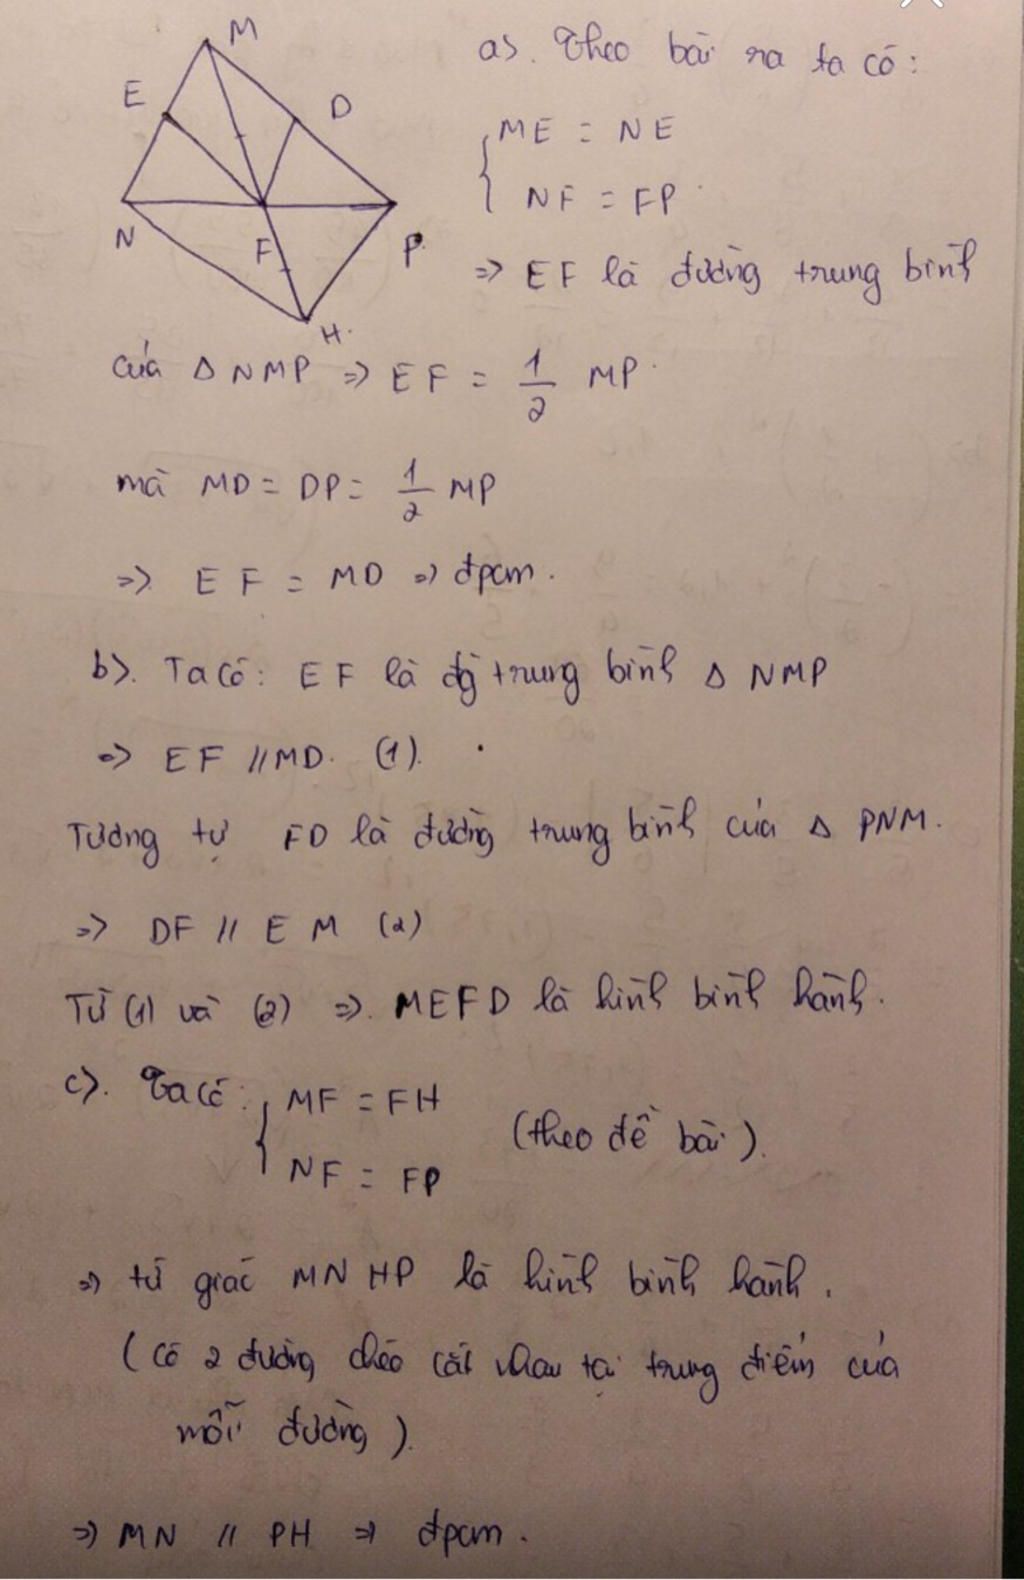 M
E
D
N
F
P.
H.
a). Theo bài ra ta có:
ME = NE
NF = FP
=> EF là đường trung bình
của Δ NMP => EF = 1/2 MP
mà MD = DP = 1/2 MP
=> EF = MD => đpcm.
b). Ta có: EF là đg trung bình Δ NMP
=> EF // MD. (1).
Tương tự FD là đường trung bình của Δ PNM.
=> DF // EM (2)
Từ (1) và (2) => MEFD là hình bình hành.
c). Ta có: MF = FH
NF = FP
(theo đề bài).
=> tứ giác MNHP là hình bình hành.
(có 2 đường chéo cắt nhau tại trung điểm của
mỗi đường).
=> MN // PH => đpcm.